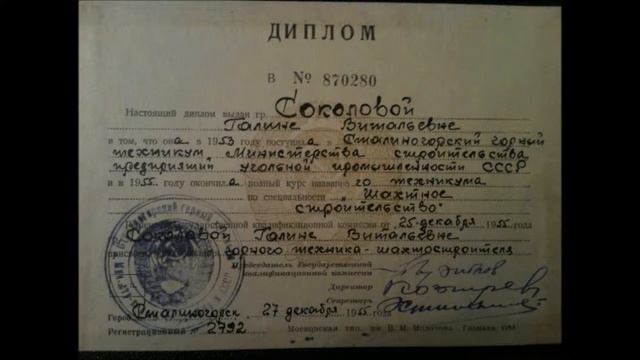 ДИПЛОМ
В № 870280
Настоящий диплом выдан гр. Соколовой
Галине Витальевне
в том, что она в 1953 году поступила в Сталиногорский горный
техникум Министерства строительства
предприятий угольной промышленности СССР
и в 1955 году окончила полный курс названного техникума
по специальности „Шахтное
строительство"
Государственной квалификационной комиссии от 25 декабря 1955 г.
Соколовой Галине Витальевне
горного техника-шахтостроителя
Председатель Государственной
квалификационной комиссии
Директор
Секретарь
Город Сталиногорск, 27 декабря 1955 года
Регистрационный № 2792
Московская тип. им. В. М. Молотова. Гознак. 1954